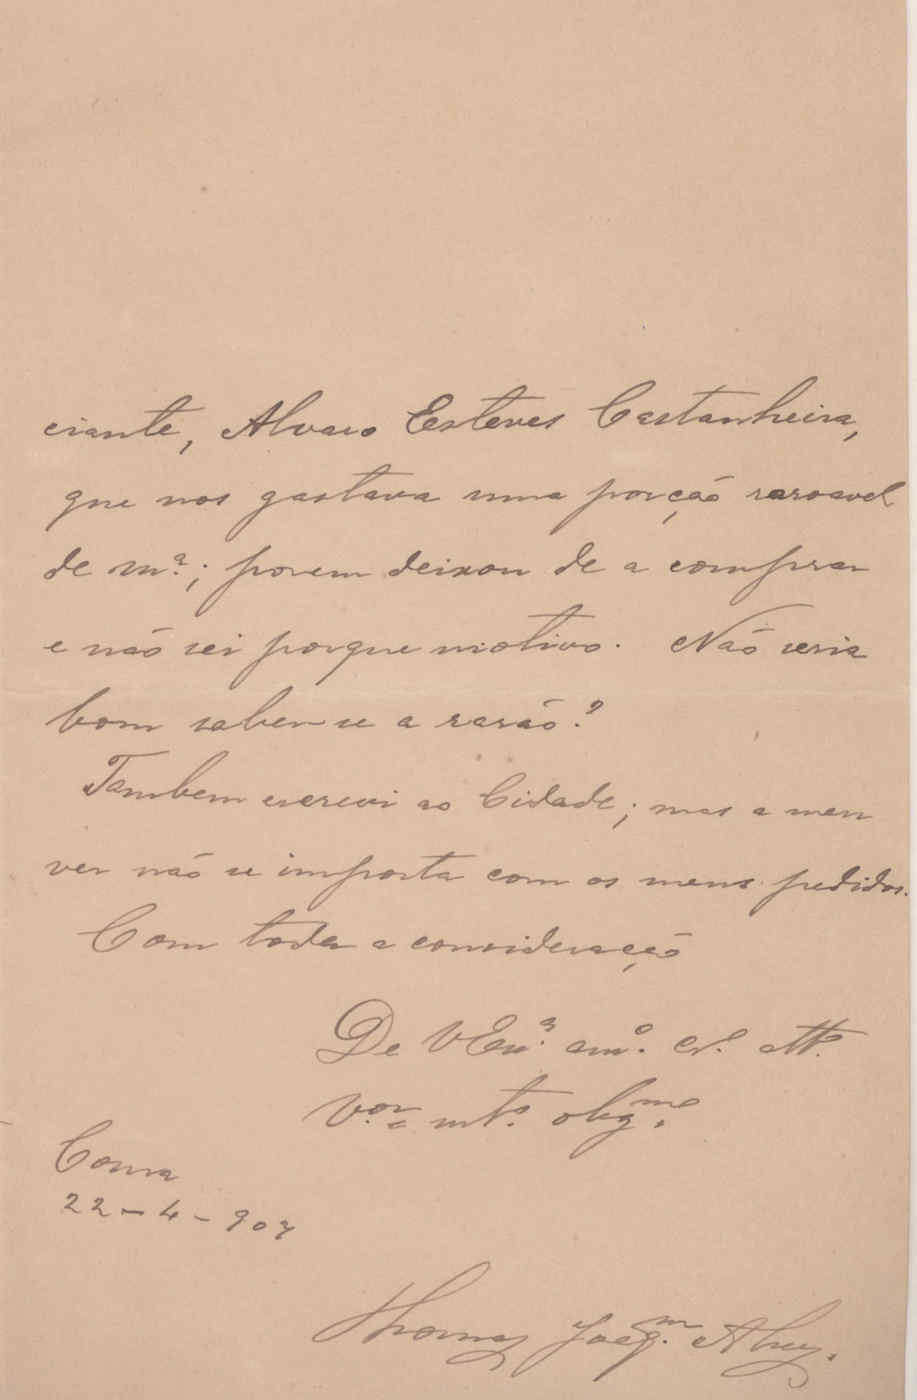 ciante, Alvaro Esteves Castanheira,
que nos gastava uma porção rasoavel
de mª.; porem deixou de a comprar
e não sei porque motivo. Não seria
bom saber-se a rasão?
Tambem escrevi ao Cidade; mas a meu
ver não se importa com os meus pedidos.
Com toda a consideração
De VExª. amº. cr. attº.
Vor. e mtº. obgmo.
Coura
22-4-907
Thomaz Joaqm.